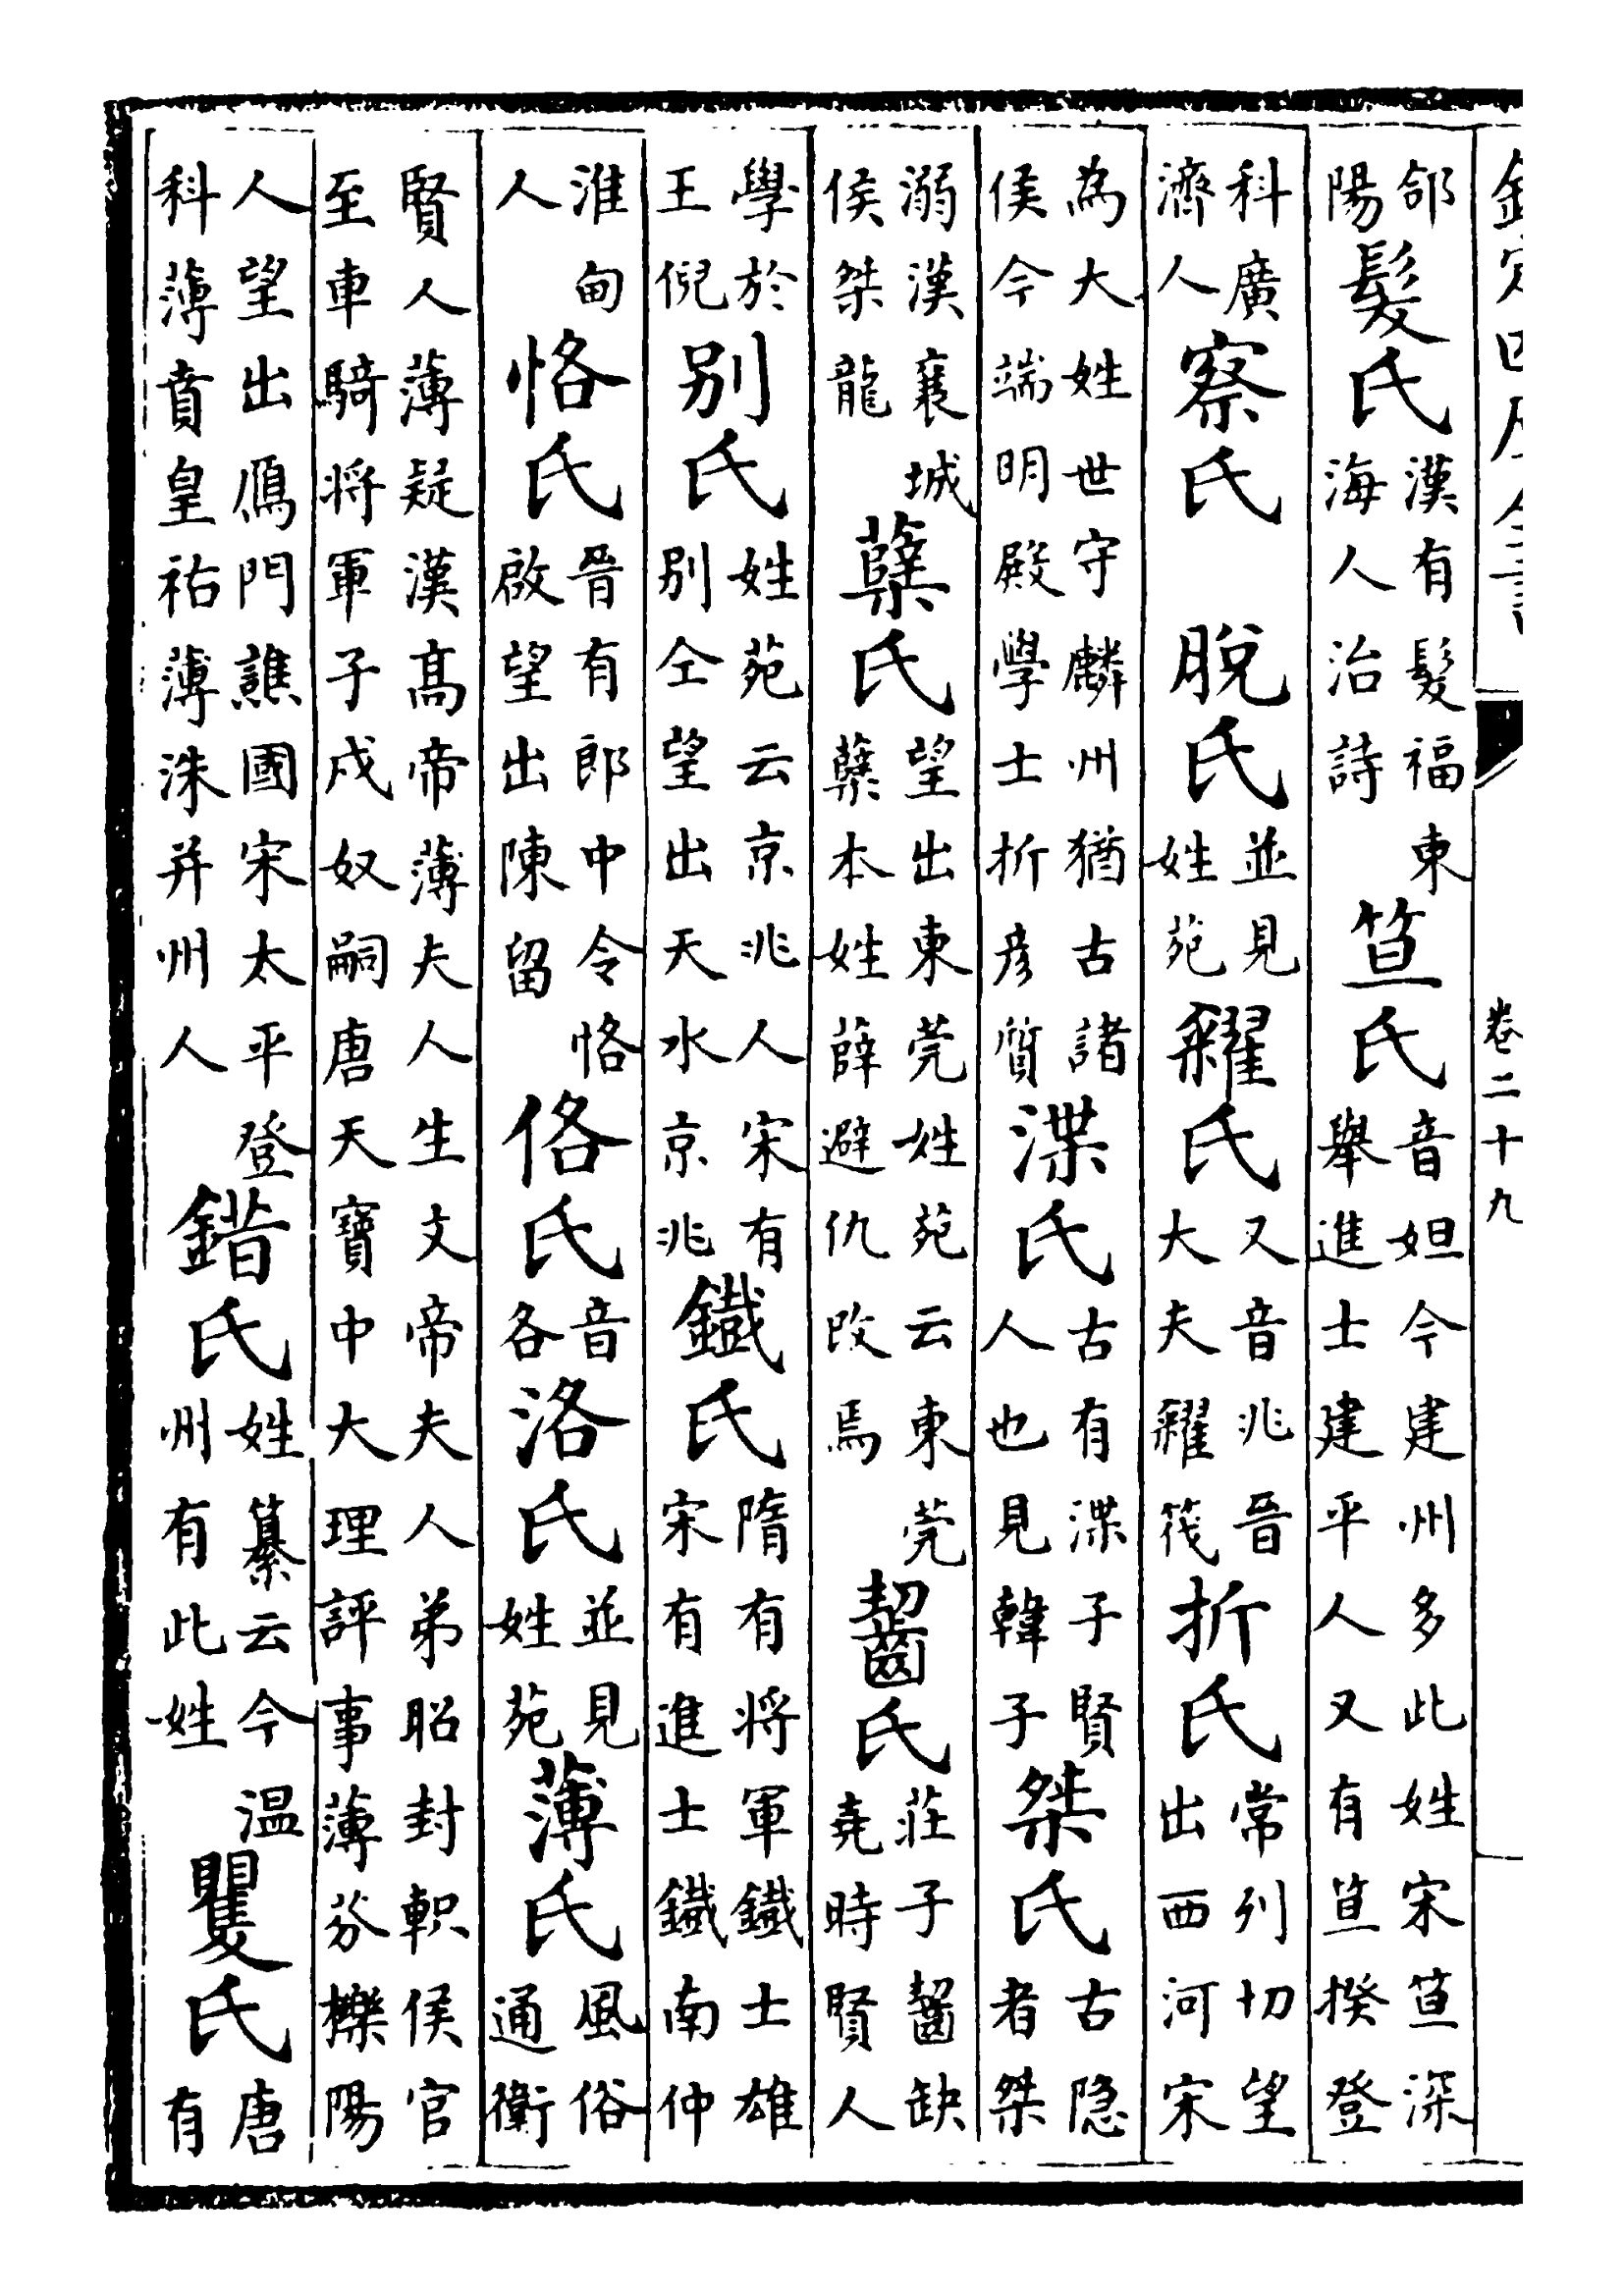 欽定四庫全書 卷二十九
郃陽髮氏漢有髮福東海人治詩笪氏音妲今建州多此姓宋笪深舉進士建平人又有笪揆登
科廣濟人察氏脫氏並見姓苑糶氏又音兆晉大夫糶筏折氏常列切望出西河宋
為大姓世守麟州猶古諸侯今端明殿學士折彦質渫氏古有渫子賢人也見韓子桀氏古隐者桀
溺漢襄城侯桀龍蘖氏望出東莞姓苑云東莞蘖本姓薛避仇改焉齧氏莊子齧缺堯時賢人
學於王倪别氏姓苑云京兆人宋有别仝望出天水京兆鐵氏隋有将軍鐵士雄宋有進士鐵南仲
淮甸人恪氏晉有郎中令恪啟望出陳留佫氏音各洛氏並見姓苑薄氏風俗通衛
賢人薄疑漢髙帝薄夫人生文帝夫人弟昭封軹侯官至車騎将軍子戎奴嗣唐天寶中大理評事薄芬櫟陽
人望出鴈門譙國宋太平登科薄賁皇祐薄洙并州人錯氏姓纂云今温州有此姓矍氏唐有